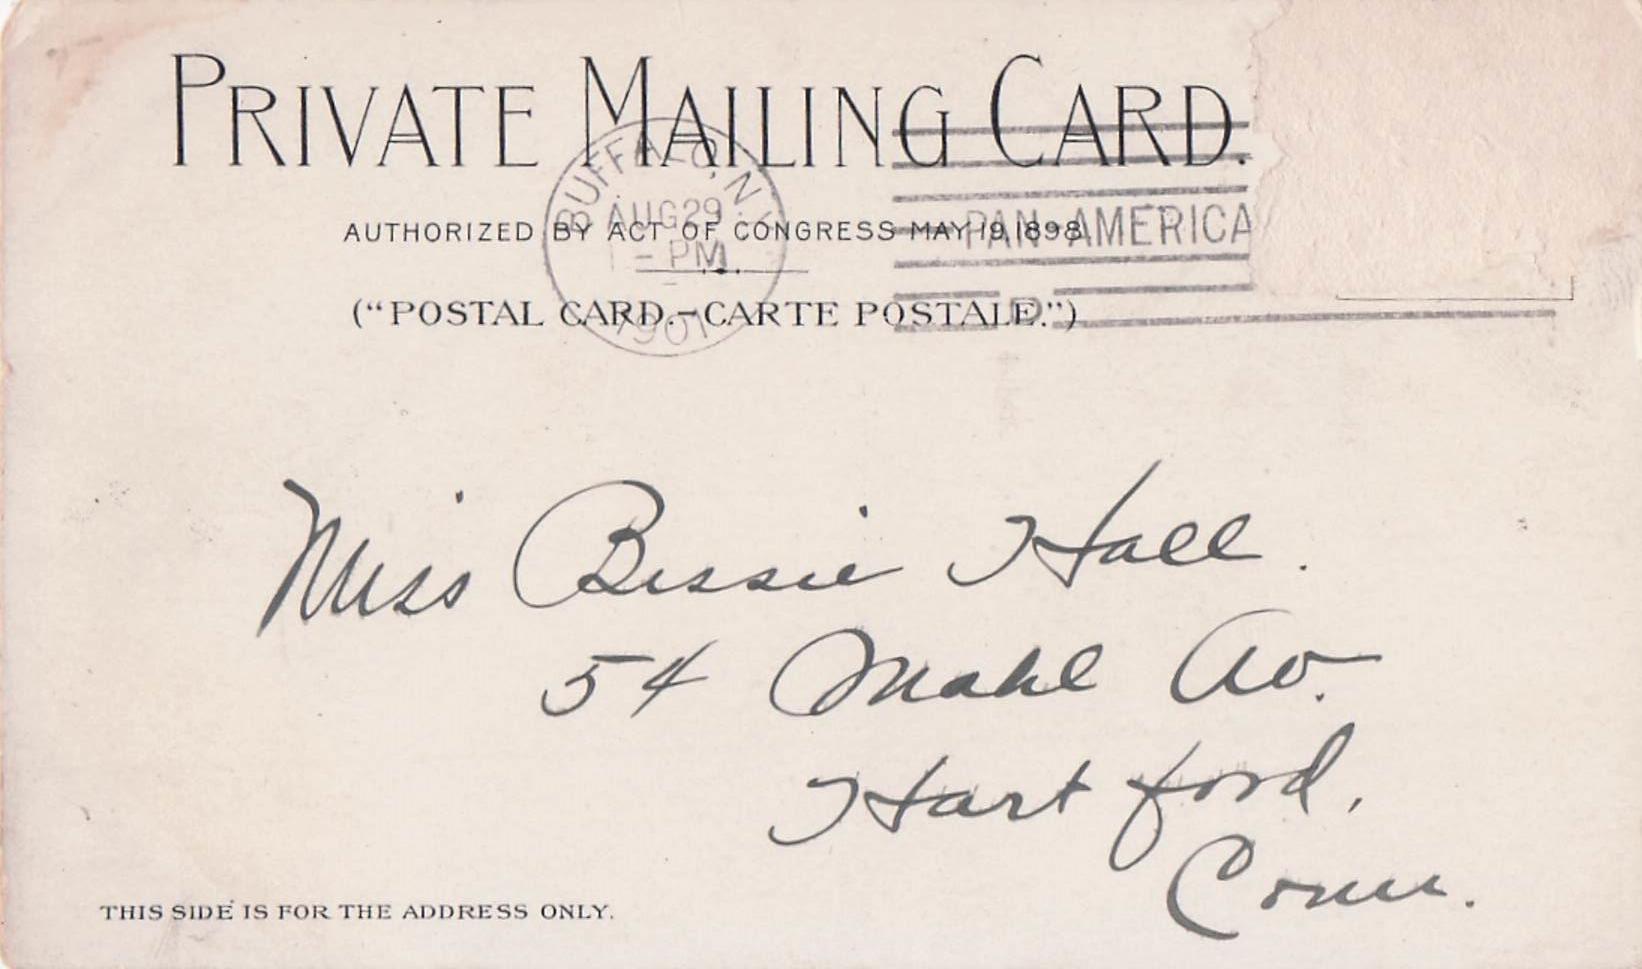 PRIVATE MAILING CARD.
BUFFALO, N.Y.
AUG 29
1-PM
1901
PAN-AMERICA
AUTHORIZED BY ACT OF CONGRESS MAY 19, 1898.
("POSTAL CARD.-CARTE POSTALE.")
D
Miss Bessie Hall.
54 Mahl Av.
Hartford,
Conn.
THIS SIDE IS FOR THE ADDRESS ONLY.